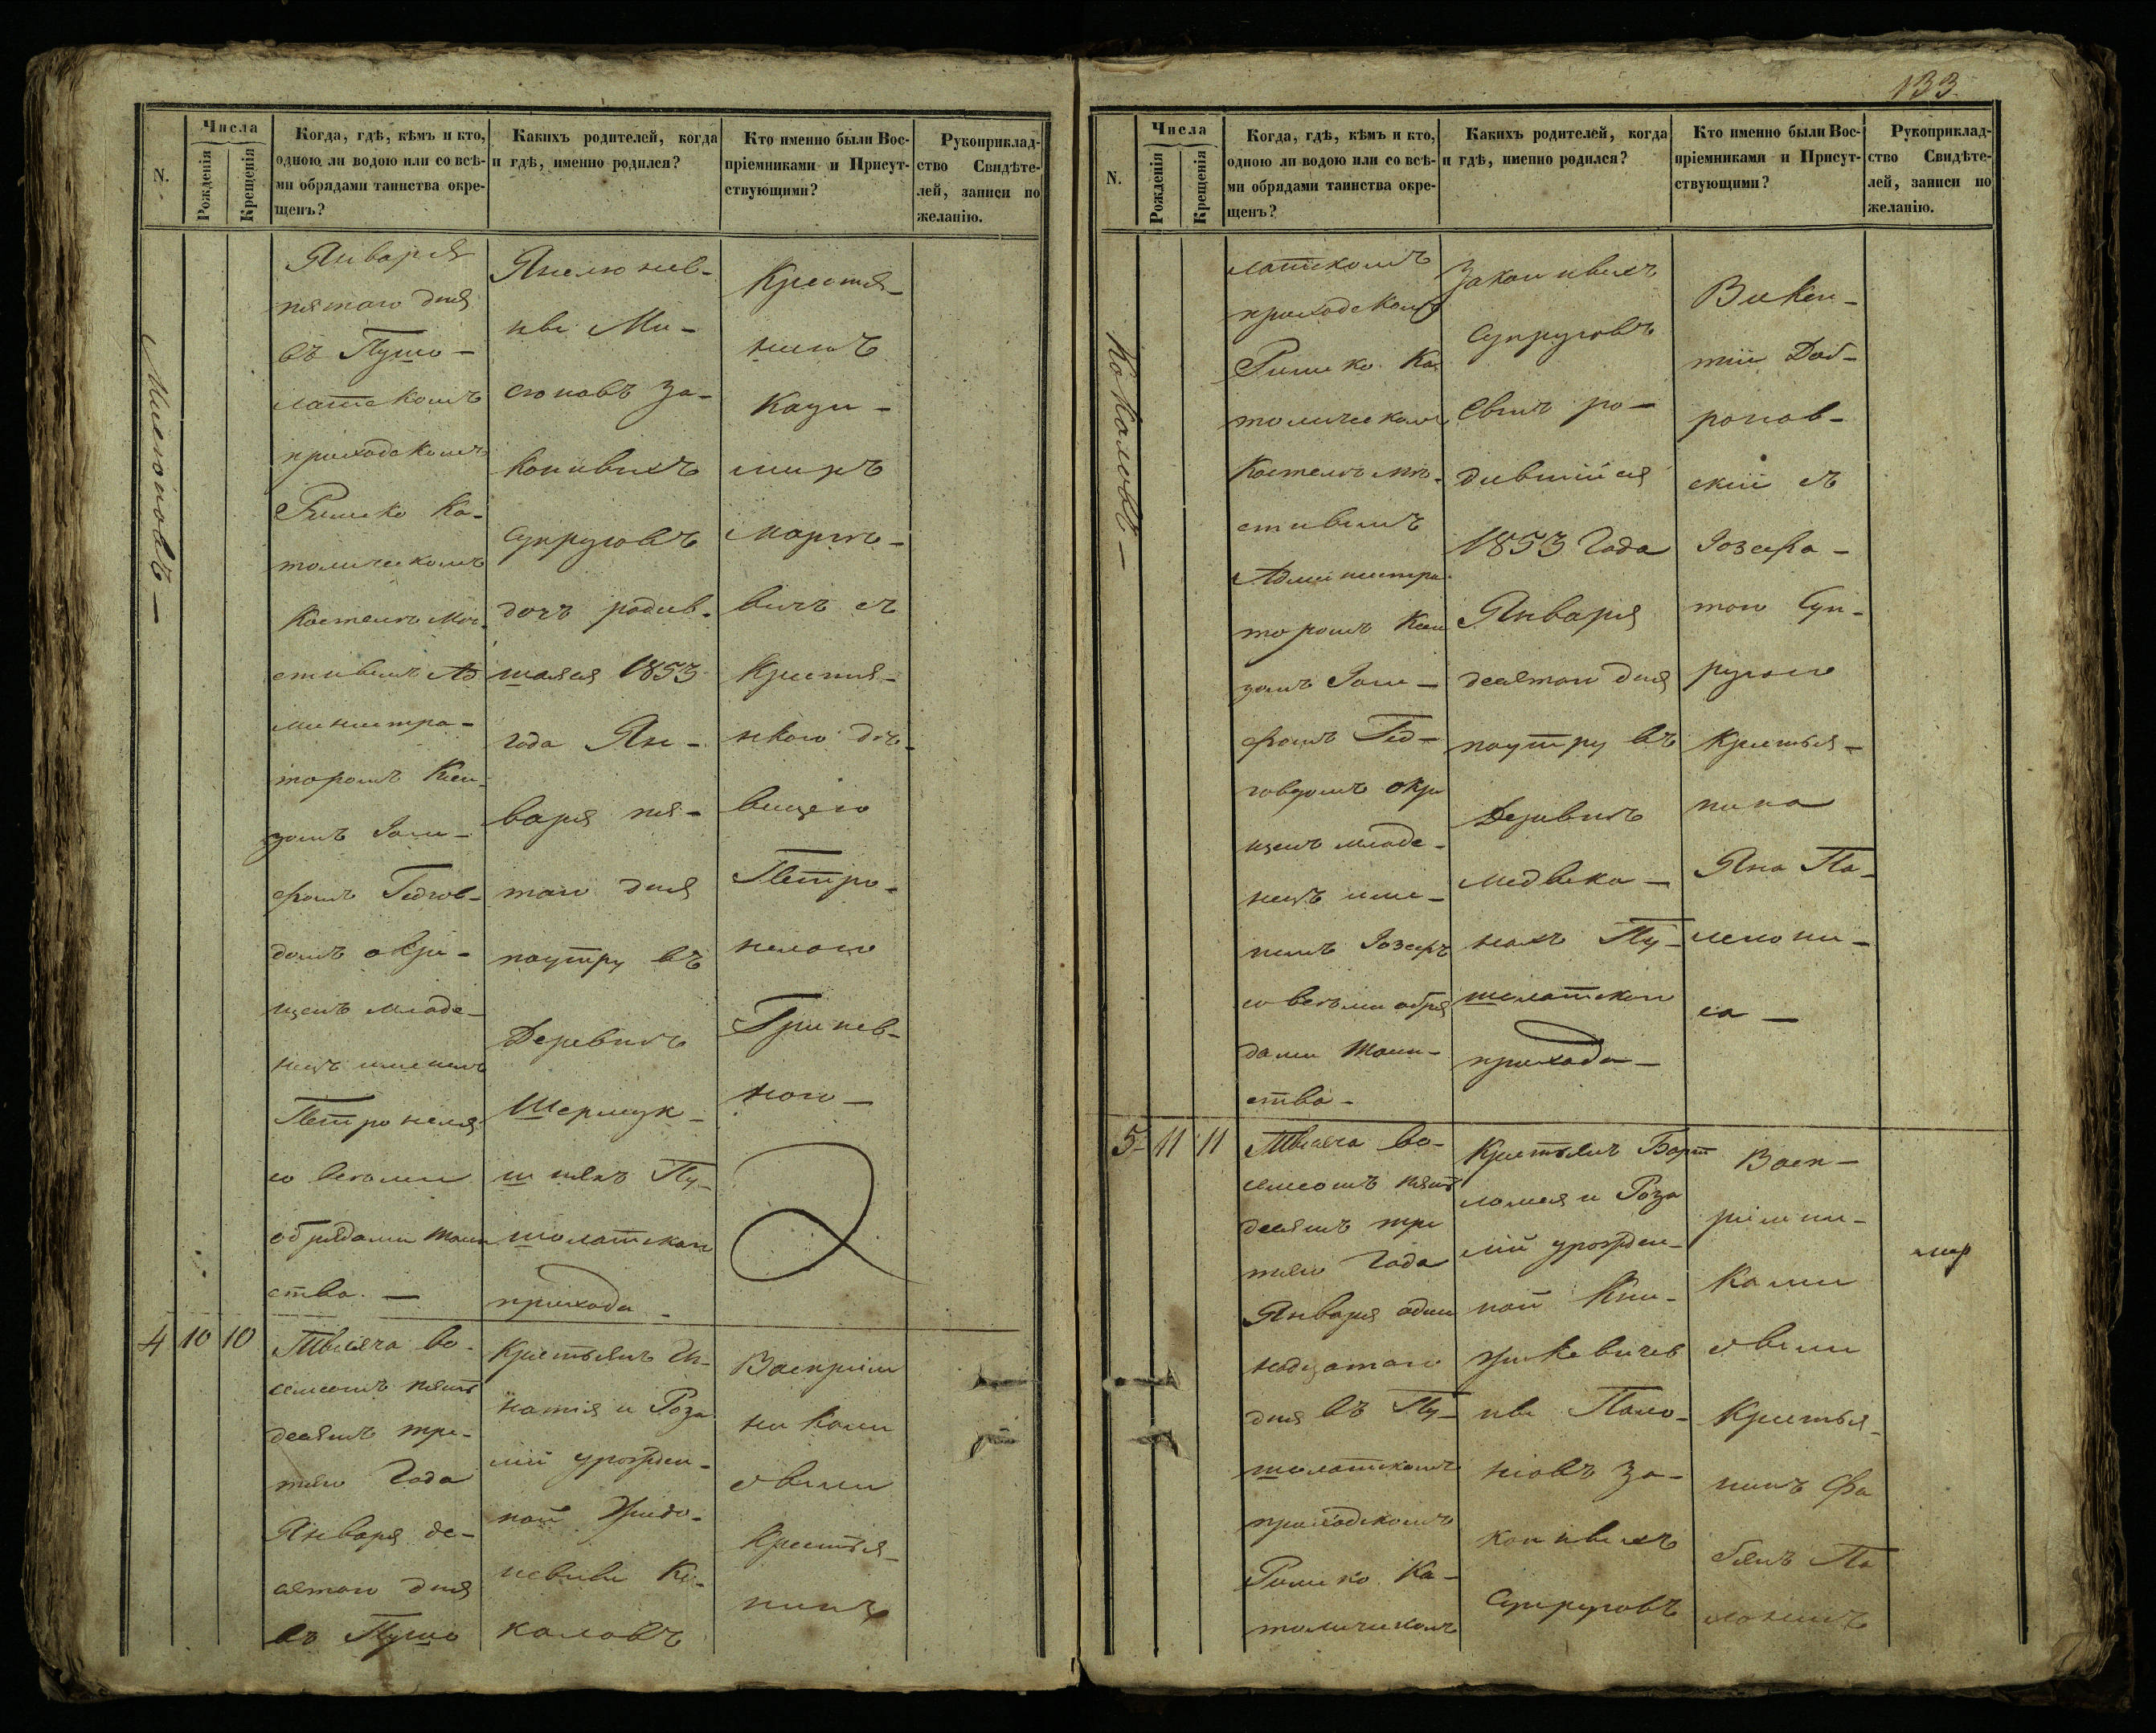 N.
Числа
Рожденія
Крещенія
Когда, гдѣ, кѣмъ и кто,
одною ли водою или со всѣ-
ми обрядами таинства окре-
щенъ?
Какихъ родителей, когда
и гдѣ, именно родился?
Кто именно были Вос-
пріемниками и Присут-
ствующими?
Рукоприклад-
ство Свидѣте-
лей, записи по
желанію.
Января
пятаго дня
въ Пушо-
латскомъ
приходскомъ
Римско Ка-
толическомъ
Костелѣ Мѣ-
стнымъ Ад
министра-
торомъ Ксен-
дзомъ
фомъ Гедгов-
домъ окре-
щенъ младе-
нецъ именемъ
Петронеля
со всѣми
обрядами Таин
ства. —
Ми-
сюновъ за-
конныхъ
Супруговъ
дочь родив-
шаяся 1853
года Ян-
варя пя-
таго дня
поутру въ
Деревнѣ
Пу-
шолатскаго
прихода -
Крестья-
нинъ
Кази-
миръ
съ
Крестья-
нкою дѣ-
вицею
Петро-
нелею
Гринев-
ною —
Мисюновъ —
4 10 10
Тысяча во-
семсотъ пять
десятъ тре-
тяго Года
Января де-
сятаго дня
въ Пушо
Крестьянъ Иг-
натія и Роза
ліи урожден-
ной
Ко-
коловъ
Воспріем
никами
были
Крестья-
нинъ
133.
N.
Числа
Рожденія
Крещенія
Когда, гдѣ, кѣмъ и кто,
одною ли водою или со всѣ-
ми обрядами таинства окре-
щенъ?
Какихъ родителей, когда
и гдѣ, именно родился?
Кто именно были Вос-
пріемниками и Присут-
ствующими?
Рукоприклад-
ство Свидѣте-
лей, записи по
желанію.
Коколовъ —
латскомъ
приходскомъ
Римско Ка
толическомъ
Костелѣ Мѣ-
стнымъ
Администра-
торомъ Ксен
дзомъ
фомъ Гед-
говдомъ окре
щенъ младе-
нецъ име-
немъ Іозефъ
со всѣми обря
дами Таин-
ства -
Законныхъ
Супруговъ
Сынъ ро-
дившійся
1853 Года
Января
десятаго дня
поутру въ
Деревнѣ
Пу-
шолатскаго
прихода —
Викен-
тій Дом-
ронов-
скій съ
Іозефа-
тою Суп-
ругою
Крестья-
нина
Яна Па-
са —
5 11 11
Тысяча во-
семсотъ пять
десятъ тре
тяго Года
Января один
надцатаго
дня въ Пу-
шолатскомъ
приходскомъ
Римско Ка-
толическомъ
Крестьянъ Барт
ломея и Роза
ліи урожден-
ной
за-
конныхъ
Супруговъ
Восп-
ріемни-
ками
были
Крестья-
нинъ Фа
біянъ Па